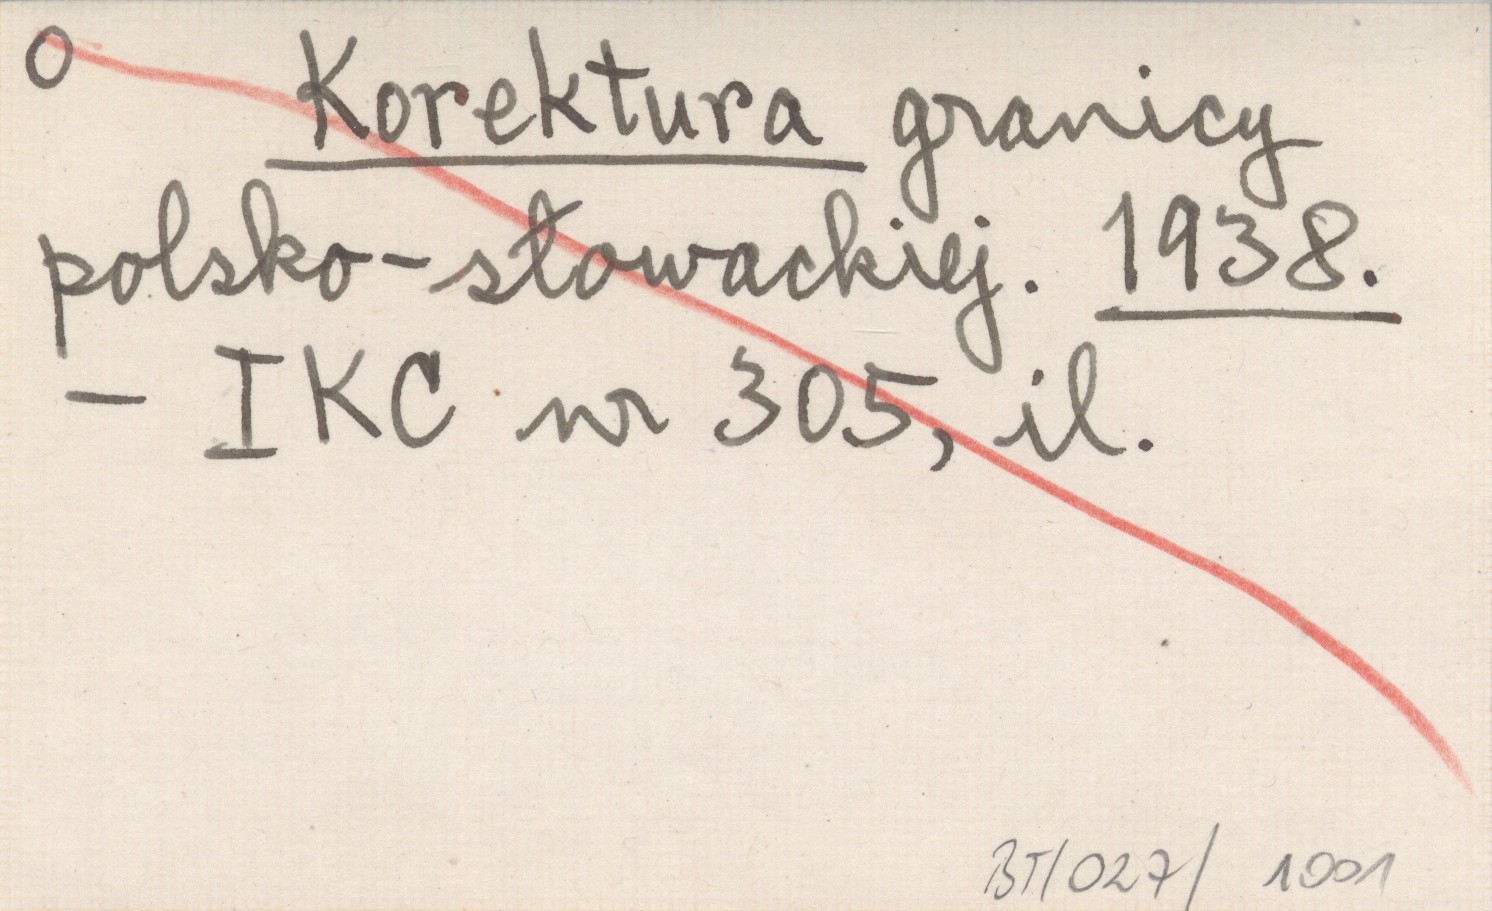 O Korektura granicy
polsko-słowackiej. 1938.
- IKC nr 305, il.
BT/027/ 1001